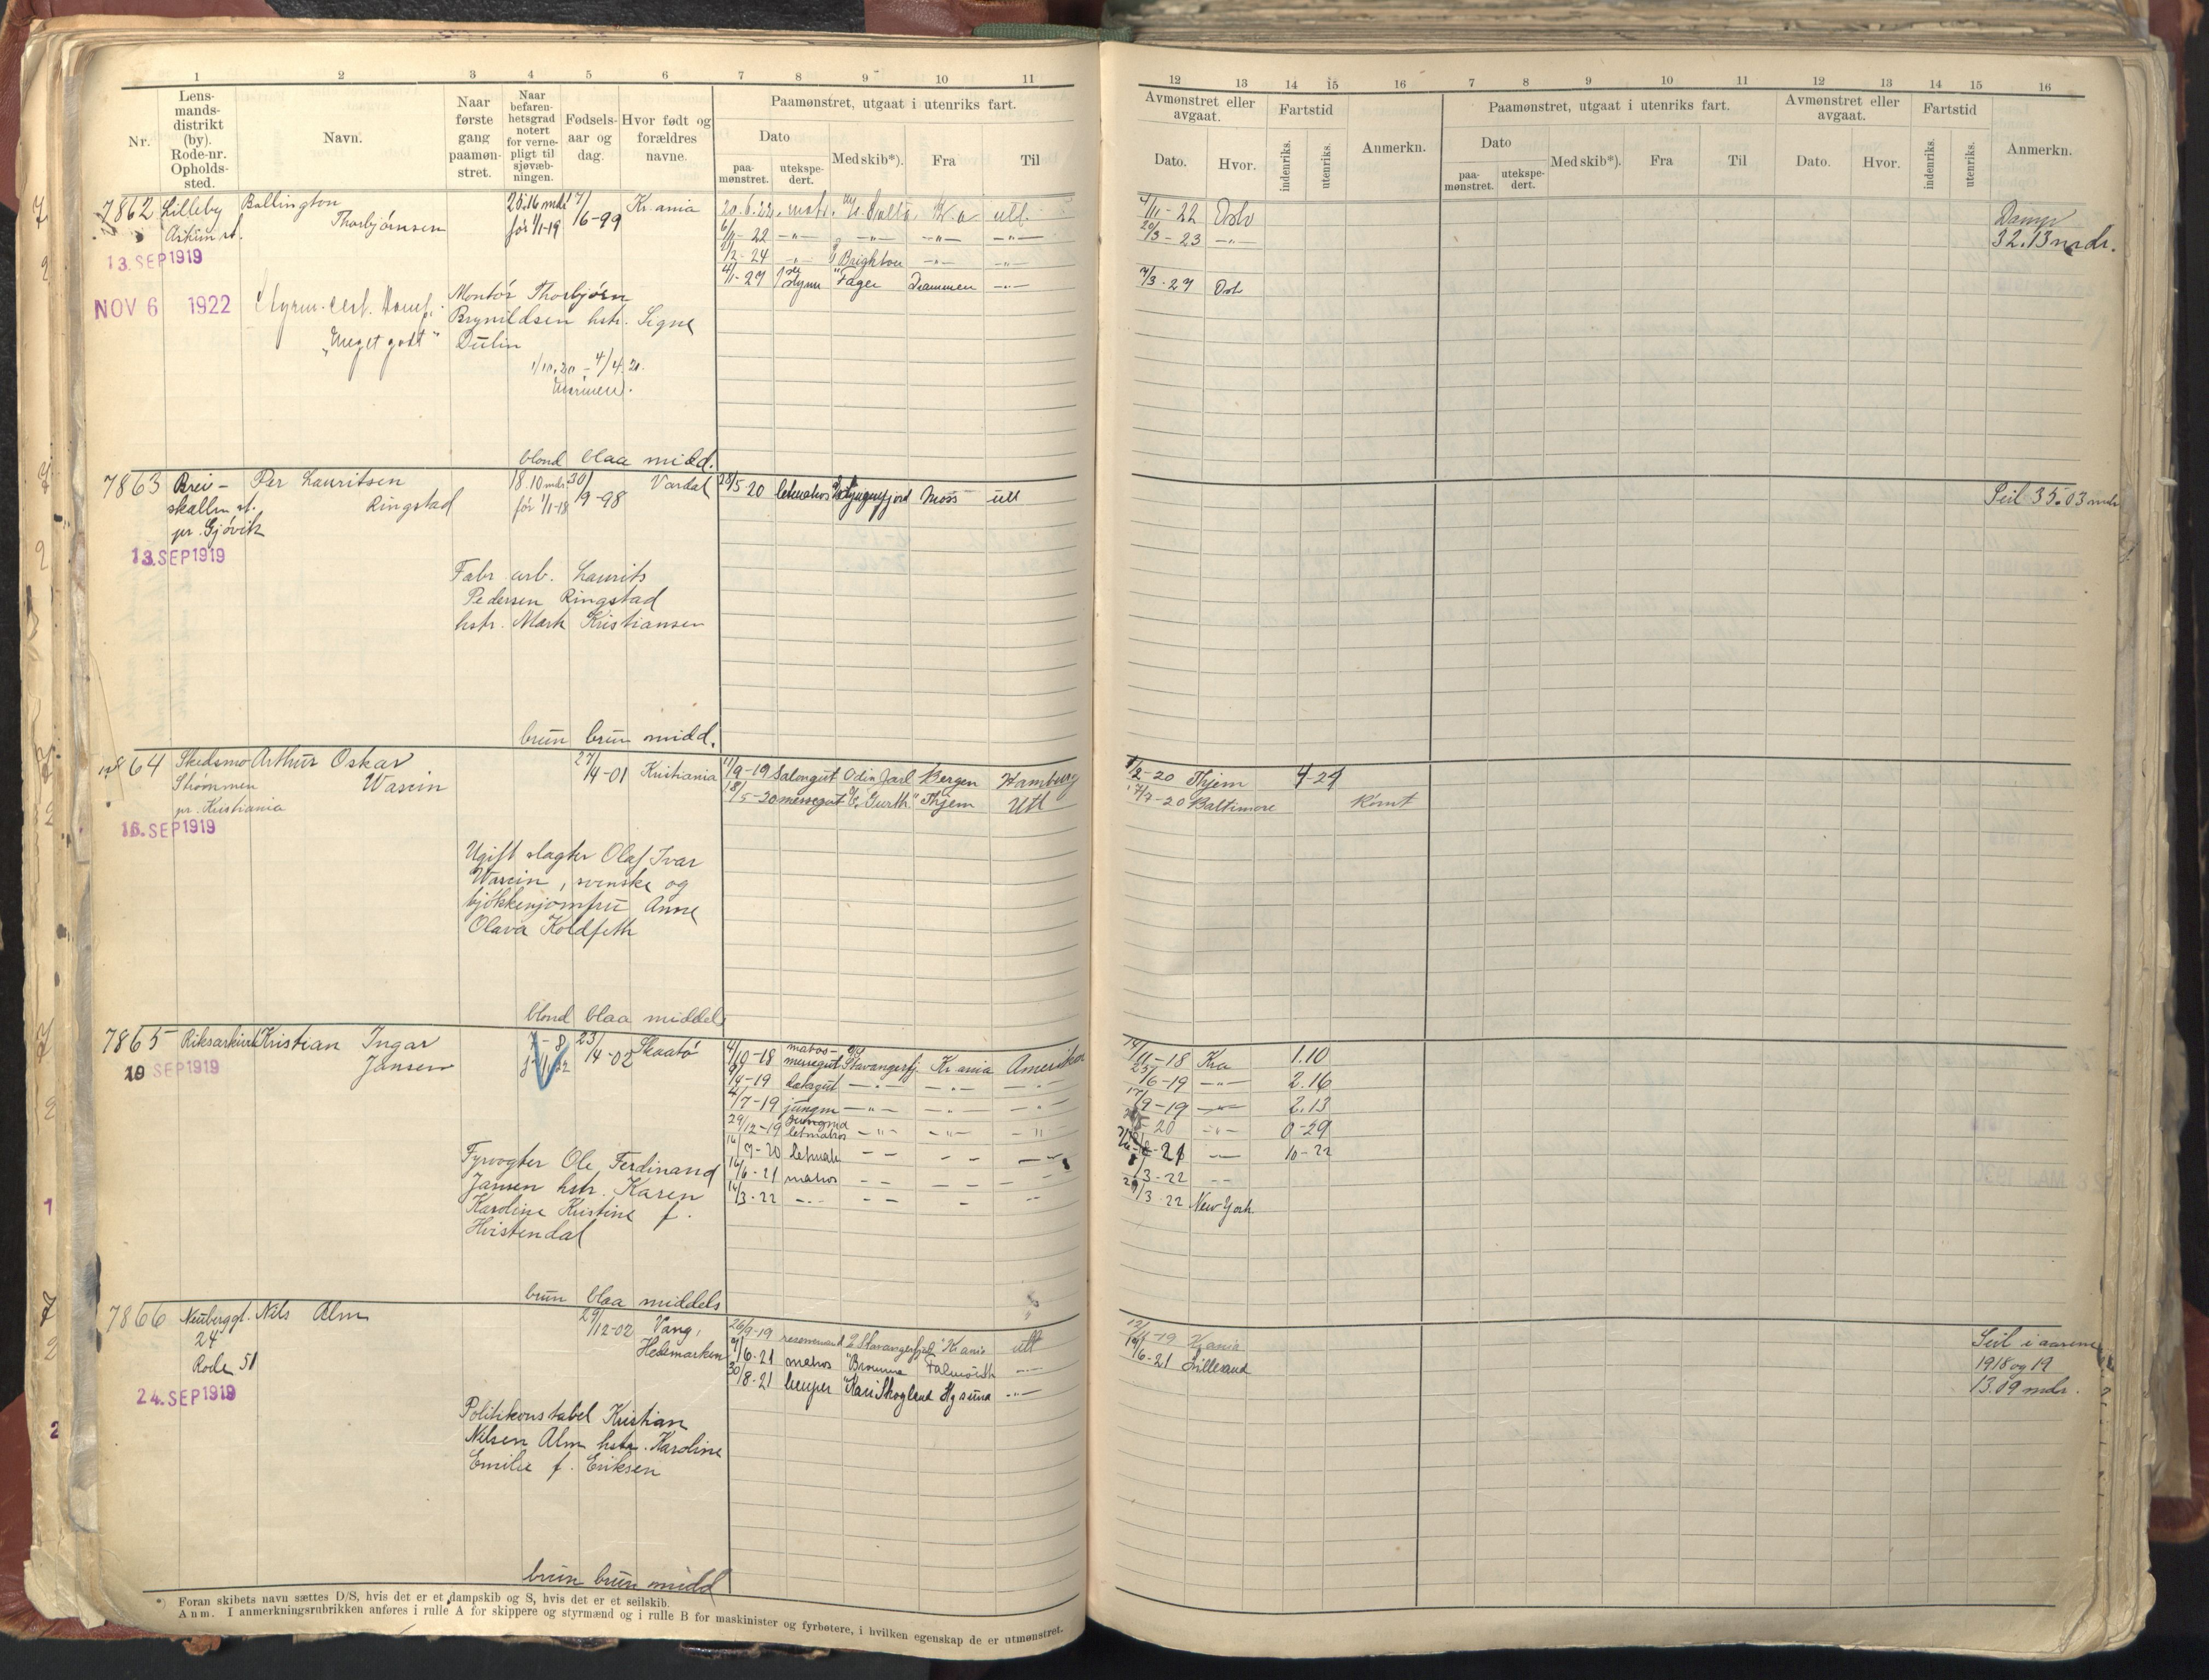 1 2 3 4 5 6 7 8 9 10 11
Nr. Lens-mands-distrikt (by). Rode-nr. Opholds-sted. Navn. Naar første gang paamøn-stret. Naar befaren-hetsgrad notert for verne-pligt til sjøvæb-ningen. Fødsels-aar og dag. Hvor født og forældres navne. Paamønstret, utgaat i utenriks fart.
Dato Med skib*). Fra Til
paa-mønstret. utekspe-dert.
7862 Lilleby Ballington 20.16 mdr 17/ Kr.ania 20.6.22
Askim st. Thorbjørnsen før 1/1-19 6-99 6/11-22 -"- -"- -"- -"-
13.SEP1919 -24 -"- Brighton -"- -"-
-27 Fager Drammen -"-
NOV 6 1922 Montør Thorbjørn
Brynildsen hstr. Signe
"Meget godt" Dulin
1/10.20 - 4/4.21.
Marinen.
blond blaa midd.
7863 Brei- Per Lauritsen 18.10 mdr 30/ Vardal 28/5-20 letmatros Lyngenfjord Moss utl
skallen st. Ringstad før 1/1-18 9-98
pr. Gjøvik
13.SEP1919
Fabr arb. Laurits
Pedersen Ringstad
hstr. Mark Kristiansen
brun brun midd.
64 Skedsmo Arthur Oskar 27/ Kristiania 17/9-19 Salongut Odin Jarl Bergen Hamburg
Strømmen Wasein 4-01 18/5-20 messegut "Gurth" Thjem Utl
pr. Kristiania
16.SEP1919
Ugift slagter Olaf Ivar
Wasein, svenske og
kjøkkenjomfru Anne
Olava Koldfeth
blond blaa middels
7865 Riksarkivet Kristian Ingar 7-8 23/ Skaatø 4/10-18 messegut Stavangerfj. Kr.ania Amerika
Jansen 4-02 /4-19 daksgut -"- -"- -"-
19 SEP1919 4/7-19 jungm -"- -"- -"-
29/12-19 Jungmd letmatros -"- -"- -"-
16/9-20 letmatr - - - - - -
16/6-21 matros - - - - - -
14/3-22 -"- - - - - -
Fyrvogter Ole Ferdinand
Jansen hstr. Karen
Karoline Kristine f.
Hvistendal
brun blaa middels
7866 Neuberggt. Nils Alm 29/ Vang, 26/9-19 Stavangerfjord Kr.ania utl
24 12-02 Hedemarken /6-21 matros "Bromma Falmouth -"-
Rode 51 30/8-21 "Kari Skogland -"-
24.SEP1919
Politikonstabel Kristian
Nilsen Alm hstr. Karoline
Emilie f. Eriksen
brun brun midd
*) Foran skibets navn sættes D/S, hvis det er et dampskib og S, hvis det er et seilskib.
Anm. I anmerkningsrubrikken anføres i rulle A for skippere og styrmænd og i rulle B for maskinister og fyrbøtere, i hvilken egenskap de er utmønstret.
12 13 14 15 16 7 8 9 10 11 12 13 14 15 16
Avmønstret eller avgaat. Fartstid Anmerkn. Paamønstret, utgaat i utenriks fart. Avmønstret eller avgaat. Fartstid Anmerkn.
Dato. Hvor. indenriks. utenriks. Dato Med skib*). Fra Til Dato. Hvor. indenriks. utenriks.
paa-mønstret. utekspe-dert.
4/11-22 Oslo Damp
20/3-23 -"- 32.13 mdr.
7/3-27 Oslo
Seil 35.03 mdr
1/2-20 Thjem 4-24
17/7-20 Baltimore Rømt
14/11-18 Kra 1.10
25/6-19 -"- 2.16
17/9-19 -"- 2.13
20 -"- 0-29
21 -"- 10-22
/3-22 -"-
29/3-22 New-York
12/11-19 Kr.ania Seil i aarene
16/6-21 Lillesand 1918 og 19
13.09 mdr.